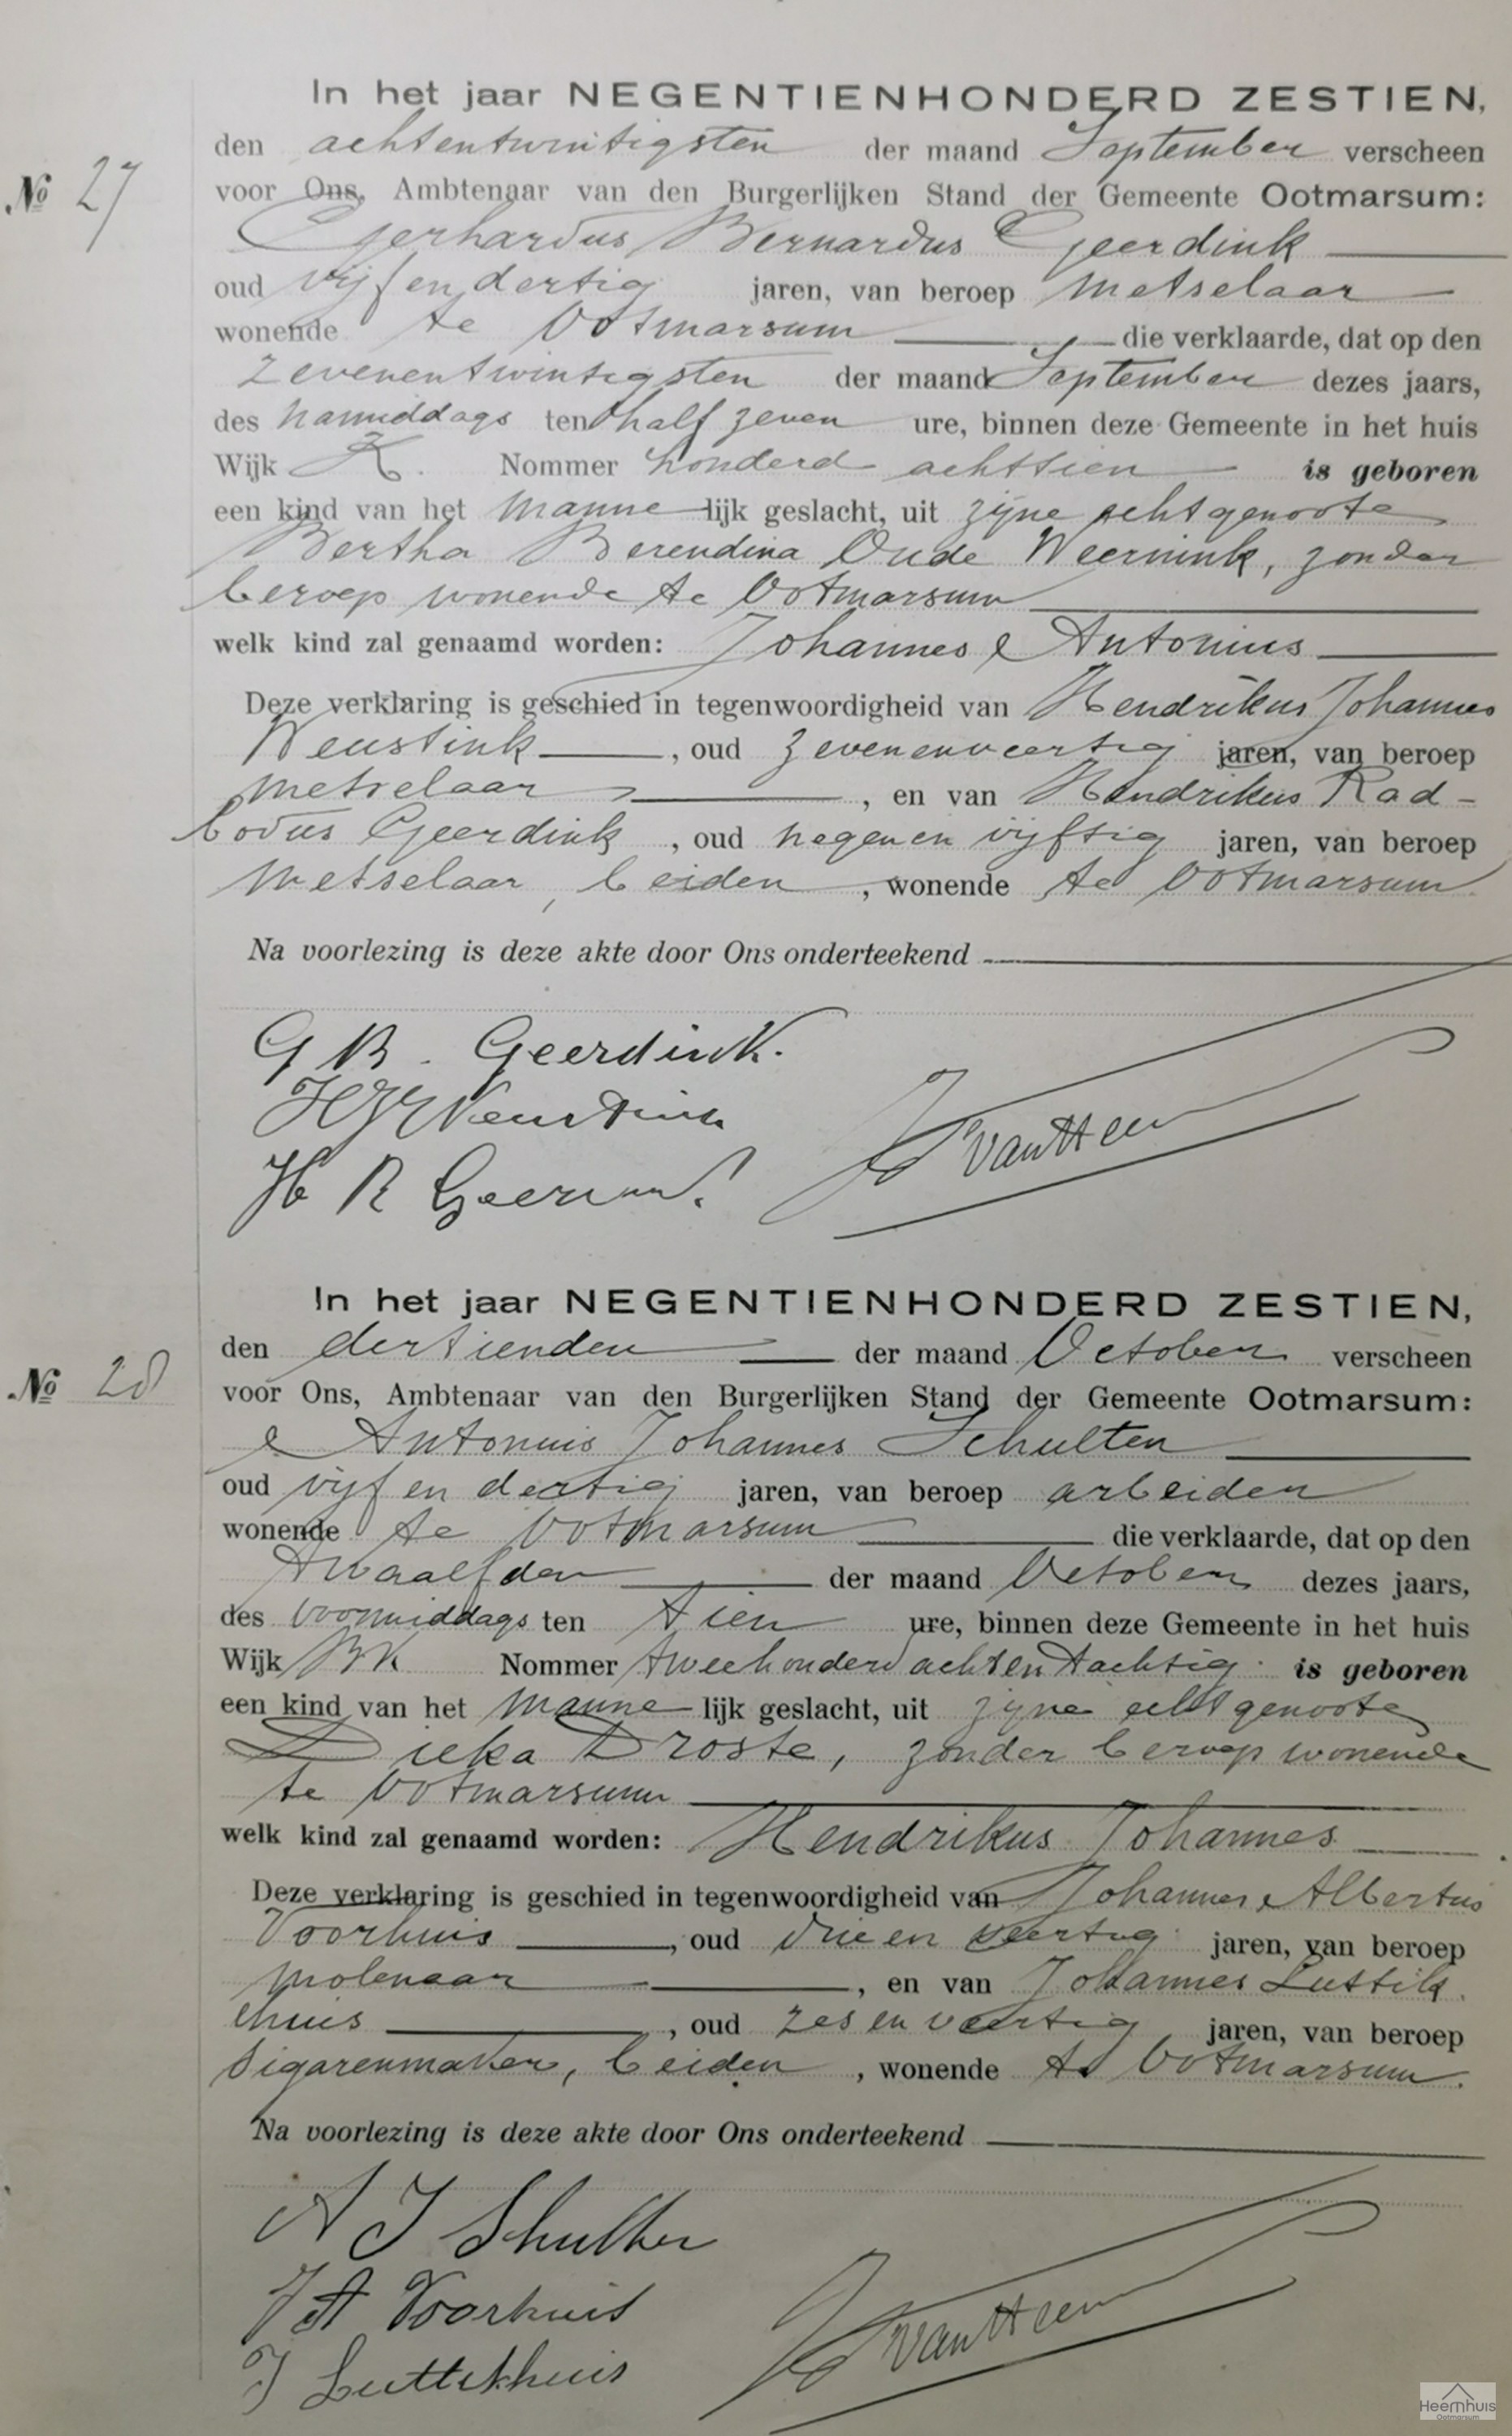 In het jaar NEGENTIENHONDERD ZESTIEN,
den achtentwintigsten der maand September verscheen
№ 27
voor Ons, Ambtenaar van den Burgerlijken Stand der Gemeente Ootmarsum:
Gerhardus Bernardus Geerdink
oud vijf en dertig jaren, van beroep metselaar
wonende te Ootmarsum die verklaarde, dat op den
zevenentwintigsten der maand September dezes jaars,
des namiddags ten half zeven ure, binnen deze Gemeente in het huis
Wijk K. Nommer honderd achttien is geboren
een kind van het manne lijk geslacht, uit zijne echtgenoote
Bertha Berendina Oude Weernink, zonder
beroep wonende te Ootmarsum
welk kind zal genaamd worden: Johannes Antonius
Deze verklaring is geschied in tegenwoordigheid van Hendrikus Johannes
Neustink, oud zevenenveertig jaren, van beroep
metselaar, en van Hendrikus Rad-
bodus Geerdink, oud negen en vijftig jaren, van beroep
metselaar, beiden, wonende te Ootmarsum.
Na voorlezing is deze akte door Ons onderteekend
G B. Geerdink.
HJ Neustink
H R Geerdink
van Heer
In het jaar NEGENTIENHONDERD ZESTIEN,
den dertienden der maand October verscheen
№ 28
voor Ons, Ambtenaar van den Burgerlijken Stand der Gemeente Ootmarsum:
Antonius Johannes Schulten
oud vijf en dertig jaren, van beroep arbeider
wonende te Ootmarsum die verklaarde, dat op den
twaalfden der maand October dezes jaars,
des voormiddags ten tien ure, binnen deze Gemeente in het huis
Wijk BK Nommer tweehonderd achtentachtig is geboren
een kind van het manne lijk geslacht, uit zijne echtgenoote
Dieka Droste, zonder beroep wonende
te Ootmarsum
welk kind zal genaamd worden: Hendrikus Johannes
Deze verklaring is geschied in tegenwoordigheid van Johannes Albertus
Voorhuis, oud drie en veertig jaren, van beroep
molenaar, en van Johannes Luttik
ehuis, oud zes en veertig jaren, van beroep
sigarenmaker, beiden, wonende te Ootmarsum.
Na voorlezing is deze akte door Ons onderteekend
A J Schulten
J A Voorhuis
J Luttikhuis
van Heer
Heemhuis
Ootmarsum